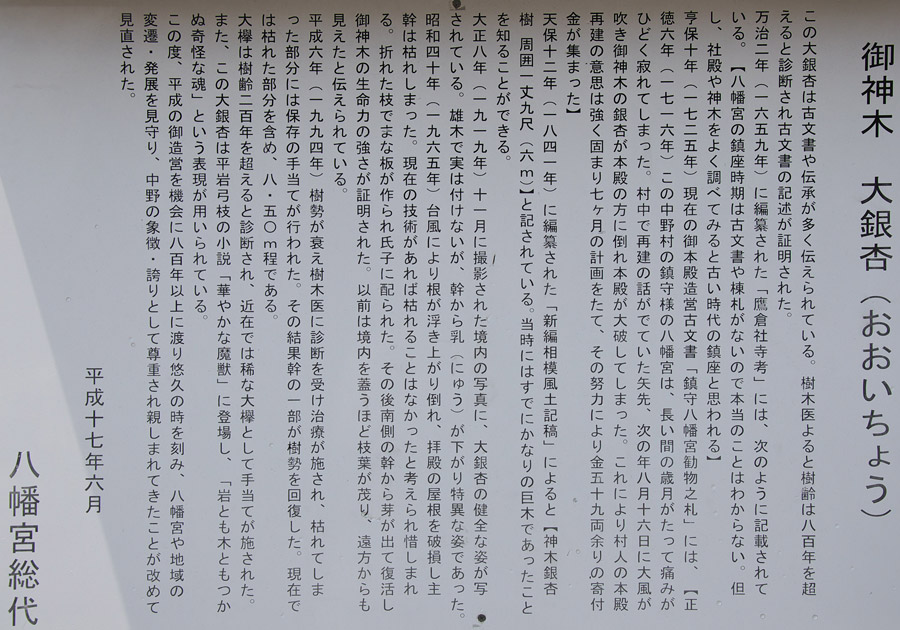 御神木　大銀杏（おおいちょう）
この大銀杏は古文書や伝承が多く伝えられている。樹木医よると樹齢は八百年を超
えると診断され古文書の記述が証明された。
万治二年（一六五九年）に編纂された「鷹倉社寺考」には、次のように記載されて
いる。【八幡宮の鎮座時期は古文書や棟札がないので本当のことはわからない。但
し、社殿や神木をよく調べてみると古い時代の鎮座と思われる】
亨保十年（一七二五年）現在の御本殿造営古文書「鎮守八幡宮勧物之札」には、【正
徳六年（一七一六年）この中野村の鎮守様の八幡宮は、長い間の歳月がたって痛みが
ひどく寂れてしまった。村中で再建の話がでていた矢先、次の年八月十六日に大風が
吹き御神木の銀杏が本殿の方に倒れ本殿が大破してしまった。これにより村人の本殿
再建の意思は強く固まり七ヶ月の計画をたて、その努力により金五十九両余りの寄付
金が集まった】
天保十二年（一八四一年）に編纂された「新編相模風土記稿」によると【神木銀杏
樹　周囲一丈九尺（六ｍ）】と記されている。当時にはすでにかなりの巨木であったこと
を知ることができる。
大正八年（一九一九年）十一月に撮影された境内の写真に、大銀杏の健全な姿が写
されている。雄木で実は付けないが、幹から乳（にゅう）が下がり特異な姿であった。
昭和四十年（一九六五年）台風により根が浮き上がり倒れ、拝殿の屋根を破損し主
幹は枯れしまった。現在の技術があれば枯れることはなかったと考えられ惜しまれ
る。折れた枝でまな板が作られ氏子に配られた。その後南側の幹から芽が出て復活し
御神木の生命力の強さが証明された。以前は境内を蓋うほど枝葉が茂り、遠方からも
見えたと伝えられている。
平成六年（一九九四年）樹勢が衰え樹木医に診断を受け治療が施され、枯れてしま
った部分には保存の手当てが行われた。その結果幹の一部が樹勢を回復した。現在で
は枯れた部分を含め、八・五〇ｍ程である。
大欅は樹齢二百年を超えると診断され、近在では稀な大欅として手当てが施された。
また、この大銀杏は平岩弓枝の小説「華やかな魔獣」に登場し、「岩とも木ともつか
ぬ奇怪な魂」という表現が用いられている。
この度、平成の御造営を機会に八百年以上に渡り悠久の時を刻み、八幡宮や地域の
変遷・発展を見守り、中野の象徴・誇りとして尊重され親しまれてきたことが改めて
見直された。
平成十七年六月
八幡宮総代